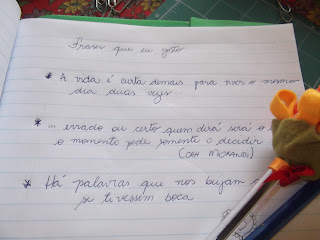 Frases que eu gosto
* A vida é curta demais para viver o mesmo
dia duas vezes
* ... errado ou certo quem dirá será o
o momento pode somente o decidir
(CAH MORANDI)
* Há palavras que nos bijam
se tivessem boca